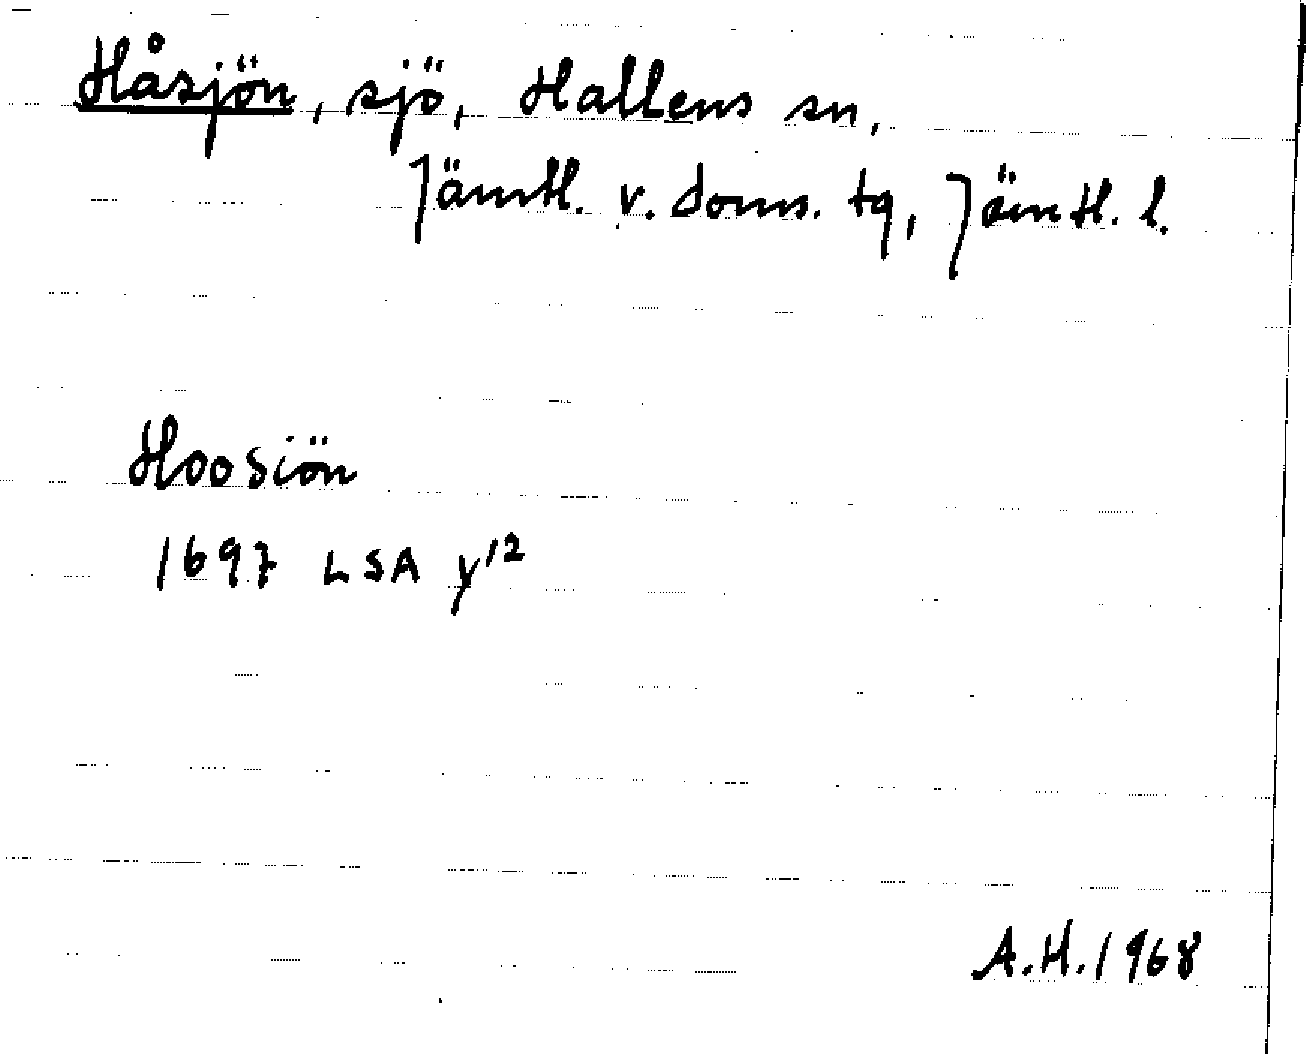 Håsjön, sjö, Hallens sn,
Jämtl. v. doms. tg, Jämtl. l.
Hoosiön
1697 LSA y12
A.H. 1968